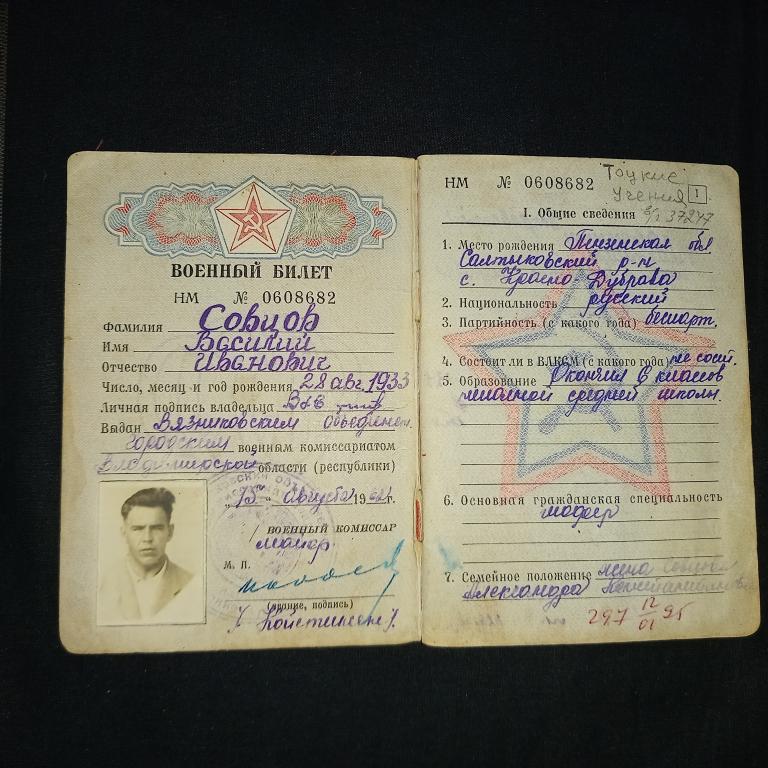 ВОЕННЫЙ БИЛЕТ
НМ № 0608682
Фамилия Совцов
Имя Василий
Отчество Иванович
Число, месяц и год рождения 28 авг. 1933
Личная подпись владельца
Выдан Вязниковским объединен.
городским военным комиссариатом
Владимирской области (республики)
"13" августа 19 г.
ВОЕННЫЙ КОМИССАР
майор
М. П.
(звание, подпись)
НМ № 0608682
Тоцкие
учения
1
37247
I. Общие сведения
1. Место рождения Пензенская обл
Салтыковский р-н
с. Красно-Дубрава
2. Национальность русский
3. Партийность (с какого года) беспарт.
4. Состоит ли в ВЛКСМ (с какого года) не сост.
5. Образование Окончил 6 классов
неполной средней школы.
6. Основная гражданская специальность
шофер
7. Семейное положение жена
Александра Константиновна
297 12/01 95